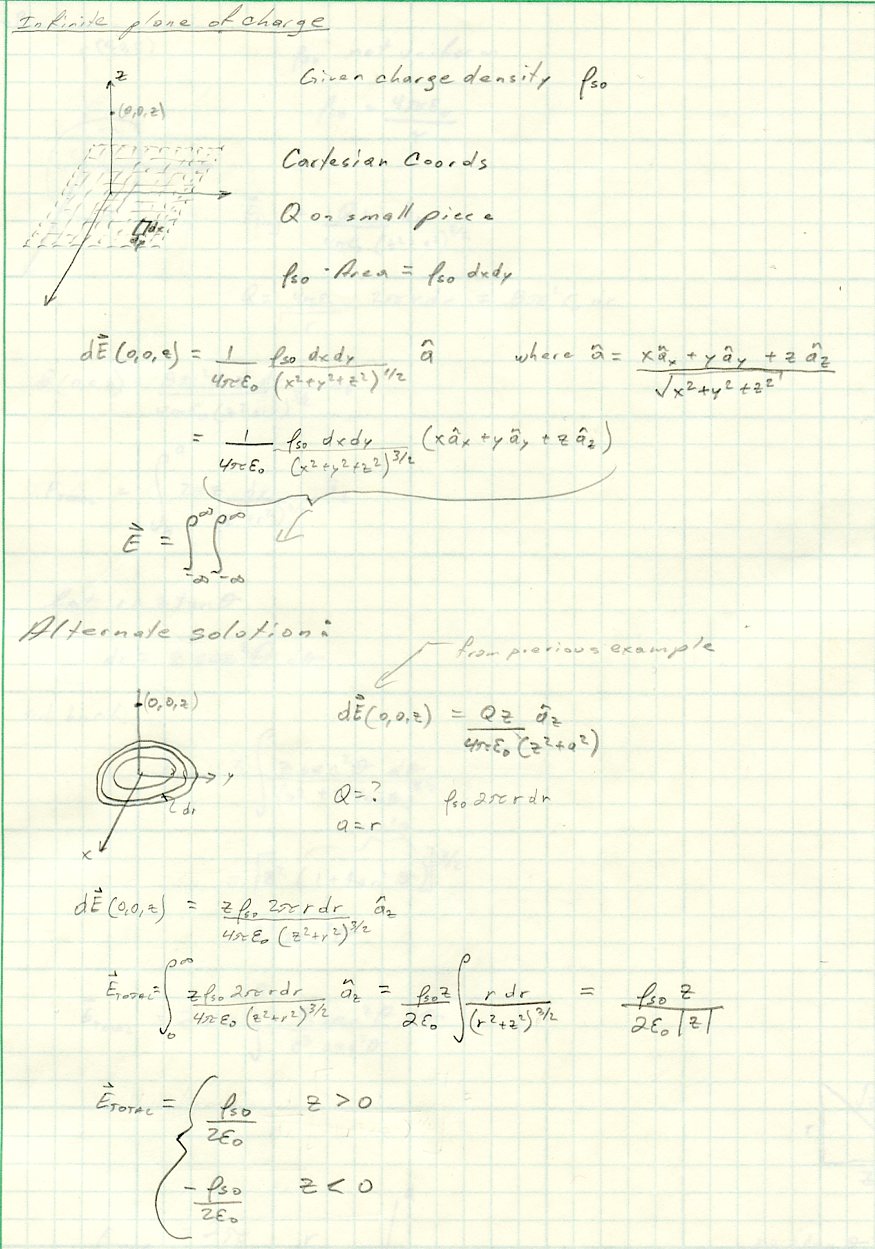 Infinite plane of charge
Given charge density ρso
z
(0,0,z)
Cartesian Coords
Q on small piece
dx
dy
ρso · Area = ρso dxdy
dE⃗ (0,0,z) = 1/4πε₀ ρso dxdy/(x²+y²+z²)^1/2 â where â = xâx + yây + zâz/√x²+y²+z²
= 1/4πε₀ ρso dxdy/(x²+y²+z²)^3/2 (xâx + yây + zâz)
E⃗ = ∫-∞^∞ ∫-∞^∞
Alternate solution:
from previous example
(0,0,z)
dE⃗(0,0,z) = Qz/4πε₀(z²+a²) âz
y
dr
x
Q=? ρso 2πrdr
a=r
dE⃗(0,0,z) = zρso 2πrdr/4πε₀ (z²+r²)^3/2 âz
E⃗TOTAL = ∫0^∞ zρso 2πrdr/4πε₀ (z²+r²)^3/2 âz = ρso z/2ε₀ ∫ r dr/(r²+z²)^3/2 = ρso z/2ε₀|z|
E⃗TOTAL = { ρso/2ε₀ z > 0
-ρso/2ε₀ z < 0